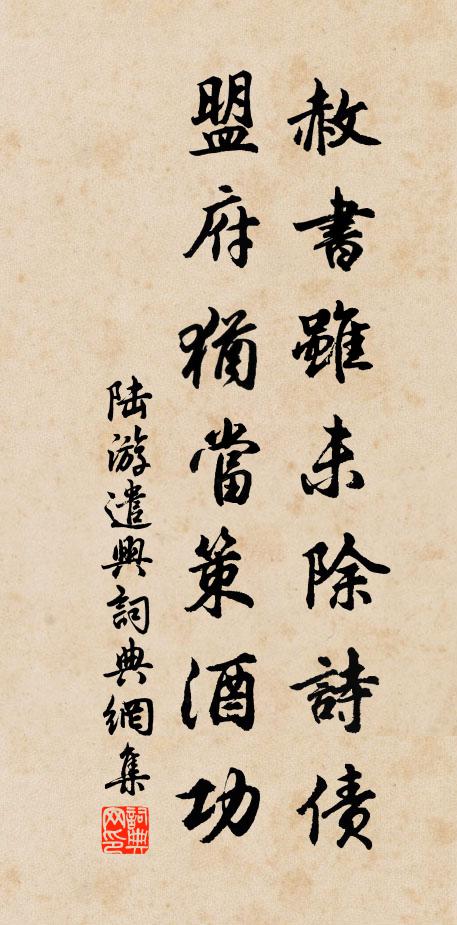 赦書雖未除詩債
盟府猶當策酒功
陸游遣興詞典網集
詞典網印